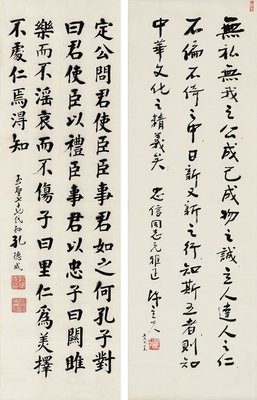 無私無我之公成己成物之誠立人達人之仁
不偏不倚之中日新又新之行知斯五者則知
中華文化之精義矣 忠信同志 陳立夫
定公問君使臣臣事君如之何孔子對
曰君使臣以禮臣事君以忠子曰關雎
樂而不滛哀而不傷子曰里仁為美擇
不處仁焉得知 至聖七十七代孫孔德成